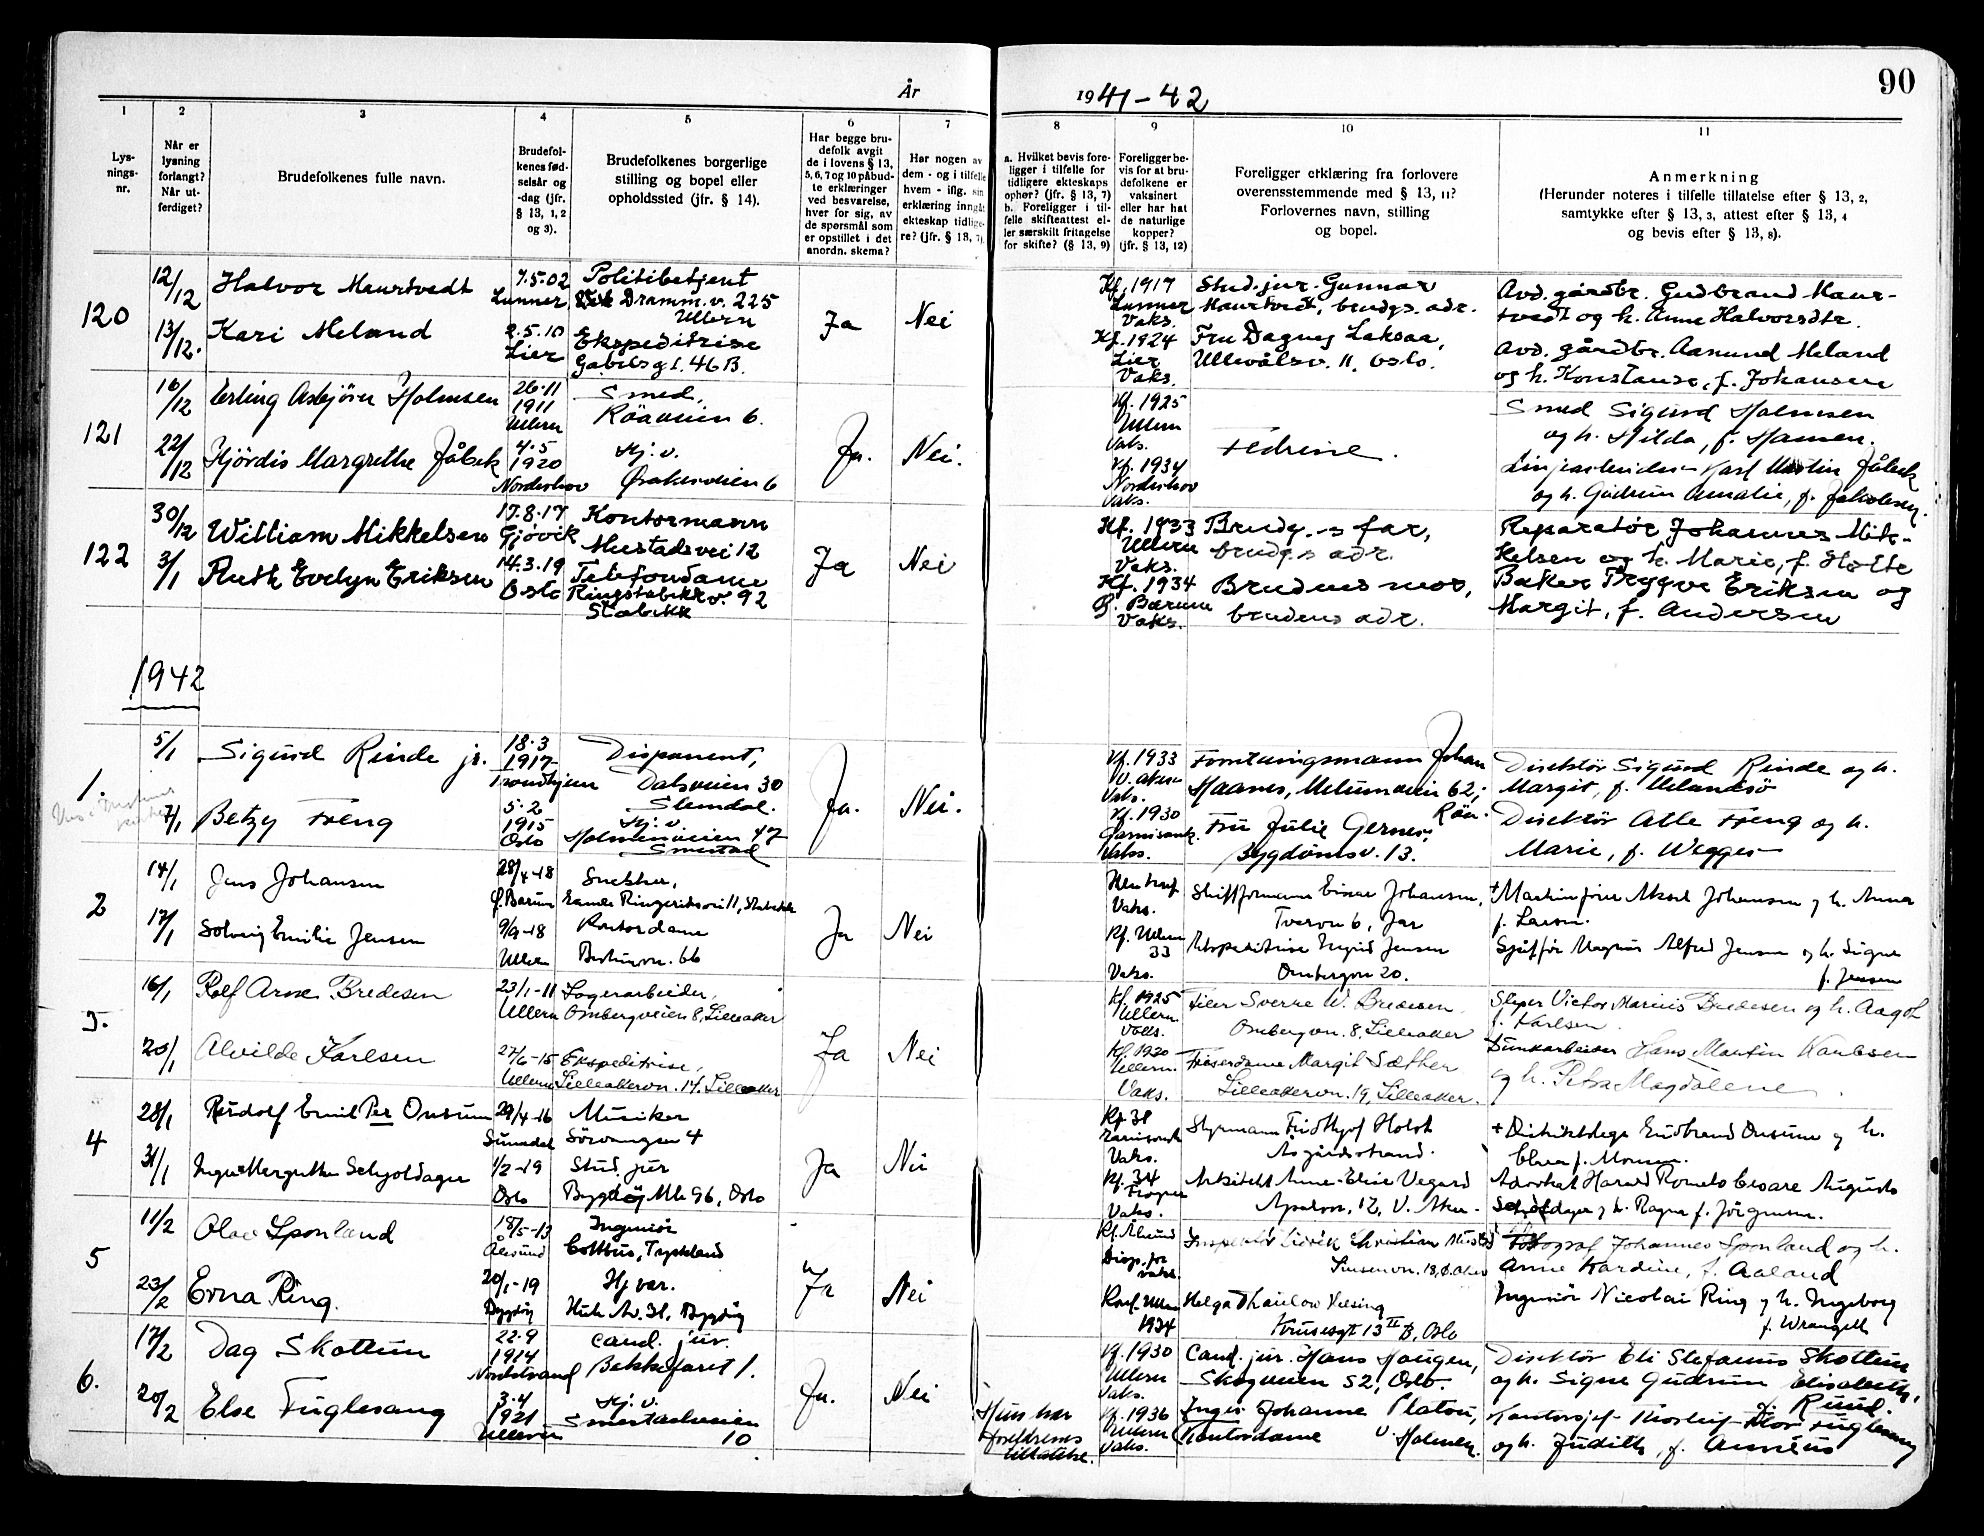 90
År
1941-42
1
2
3
4
5
6
7
8
9
10
11
Lys-
nings-
nr.
Når er
lysning
forlangt?
Når ut-
ferdiget?
Brudefolkenes fulle navn.
Brudefol-
kenes fød-
selsår og
-dag (jfr.
§ 13, 1, 2
og 3).
Brudefolkenes borgerlige
stilling og bopel eller
opholdssted (jfr. § 14).
Har begge bru-
defolk avgit
de i lovens § 13,
5, 6, 7 og 10 påbud-
te erklæringer
ved besvarelse,
hver for sig, av
de spørsmål som
er opstillet i det
anordn. skema?
Har nogen av
dem - og i tilfelle
hvem - iflg. sin
erklæring inngåt
ekteskap tidlige-
re? (jfr. § 13, 7).
a. Hvilket bevis fore-
ligger i tilfelle for
tidligere ekteskaps
ophør? (jfr. § 13, 7)
b. Foreligger i til-
felle skifteattest el-
ler særskilt fritagelse
for skifte? (§ 13, 9)
Foreligger be-
vis for at bru-
defolkene er
vaksinert
eller har hat
de naturlige
kopper?
(jfr. § 13, 12)
Foreligger erklæring fra forlovere
overensstemmende med § 13, 11?
Forlovernes navn, stilling
og bopel.
Anmerkning
(Herunder noteres i tilfelle tillatelse efter § 13, 2,
samtykke efter § 13, 3, attest efter § 13, 4
og bevis efter § 13, 8).
120
12/12
Halvor Maurtvedt
7.5.02
Lunner
Politibetjent
Dramm.v. 225
Ullern
13/12.
Kari Meland
2.5.10
Lier
Ekspeditrise
Gabelsgt. 46 B.
Ja
Nei
Kf. 1917
Lunner
Vaks.
Kf. 1924
Lier
Vaks.
Stud. jur. Gunnar
Maurtvedt, brudgs. adr.
Fru Dagny Laksaa,
Ullevålsv. 11, Oslo.
Avd. gårdbr. Gudbrand Maur-
tvedt og h. Anne Halvorsdtr.
Avd. gårdbr. Aamund Meland
og h. Konstanse, f. Johansen
121
16/12
Erling Asbjørn Holmsen
26.11
1911
Ullern
Smed,
Röaveien 6.
22/12
Hjördis Margrethe Jåbek
4.5
1920
Norderhov
Hj. v.
Örakerveien 6
Ja.
Nei.
Kf. 1925
Ullern
Vaks.
Kf. 1934
Norderhov
Vaks.
Fedrene.
Smed Sigurd Holmsen
og h. Hilda, f. Hansen.
Linjearbeider Karl Martin Jåbek
og h. Gudrun Amalie, f. Jakobsen.
122
30/12
William Mikkelsen
17.8.17
Gjøvik
Kontormann
Mustadsvei 12
3/1
Ruth Evelyn Eriksen
14.3.19
Oslo
Telefondame
Ringstabekkv. 92
Stabekk
Ja
Nei
Kf. 1933
Ullern
Vaks.
Kf. 1934
Ø. Bærum
Vaks.
Brudg.s far,
brudgs adr.
Brudens mor,
brudens adr.
Reparatør Johannes Mik-
kelsen og h. Marie, f. Holte
Baker Trygve Eriksen og
Margit, f. Andersen
1942
1.
5/1
Sigurd Rinde jr.
18.3
1917
Trondhjem
Disponent,
Dalsveien 30
Slemdal.
7/1
Betzy Freng
5.2
1915
Oslo
Hj. v.
Holmenveien 47
Smestad
Ja.
Nei.
Kf. 1933
V. Aker
Vaks.
Kf. 1930
Garnisonsk.
Vaks.
Forretningsmann Johan
Haanes, Melumveien 62,
Röa.
Fru Julie Gernes,
Bygdönesv. 13.
Direktör Sigurd Rinde og h.
Margit, f. Melandsö
Direktör Atle Freng og h.
Marie, f. Wegge
2
14/1
Jens Johansen
28/4-18
Ø. Bærum
Snekker,
Gamle Ringeriksvei 11, Stabekk
17/1
Solveig Emilie Jensen
9/9-18
Ullern
Kontordame
Bestumvn. 66
Ja
Nei
Vaks.
Kf. Ullern
33
Vaks.
Skiftformann Einar Johansen,
Tverrvn 6, Jar
Ekspeditrise Ingrid Jensen
Ombergvn 20.
+ Maskinfører Aksel Johansen og h. Anna
f. Larsen.
Sjåffør Magnus Alfred Jensen og h. Signe
f. Jensen
3.
16/1
Rolf Arne Bredesen
23/1-11
Ullern
Lagerarbeider,
Ombergveien 8, Lilleaker
20/1
Alvilde Karlsen
27/6-15
Ullern
Ekspeditrise,
Lilleakervn. 17, Lilleaker
Ja
Nei
Kf. 1925
Ullern
Vaks.
Kf. 1930
Ullern.
Vaks.
Filer Sverre W. Bredesen
Ombergvn. 8, Lilleaker
Friserdame Margit Sæther
Lilleakervn. 19, Lilleaker.
Sliper Victor Marius Bredesen og h. Aagot
f. Karlsen.
Brukarbeider Hans Martin Karlsen
og h. Petra Magdalene
4
28/1
Rudolf Emil Per Onsum
29/4-16
Sunndal
Musiker
Sörvangen 4
31/1
Inger Margrethe Schjoldager
1/2-19
Oslo
Stud. jur
Bygdöy Allé 96, Oslo
Ja
Nei
Kf 31
Garnisonsk
Vaks.
Kf. 34
Frogner
Vaks.
Styrmann Fridthjof Holst
Åsgårdstrand.
Arkitekt Anne-Elise Vegard
Apalvn. 12, V. Aker
+ Distriktslege Gudbrand Onsum og h.
Clara f. Monsen.
Advokat Harald Romeo Cesare Augusto
Schjoldager og h. Ragna f. Jörgensen.
5
11/2
Olav Sponland
18/5-13
Ålesund
Ingeniör
Cottbus, Tyskland
23/2
Erna Ring.
20/1-19
Bygdöy
Hj. var.
Huk Av. 31, Bygdöy
Ja
Nei
Kf. Ålesund
Disp. for
vaks.
Konf. Ullern
1934
Inspektör Lidrik Christian Mustad
Sinsenvn. 18, Ø. Aker
Helga Thaulow Velsing
Krusesgt 13 II B, Oslo
Fotograf Johannes Sponland og h.
Anne Kardine, f. Aaland
Ingeniör Nicolai Ring og h. Ingeborg
f. Wrangell
6.
17/2
Dag Skottun
22.9
1914
Nordstrand
Cand. jur.
Bekkefaret 1.
20/2
Else Fuglesang
3.4
1921
Ullern
Hj. v.
Smestadveien
10
Ja.
Nei
Hun har
foreldrenes
tillatelse.
Kf. 1930
Ullern
Vaks.
Kf. 1936
Ullern
Vaks.
Cand. jur. Hans Haugen,
Skogveien 52, Oslo.
Inger Johanne Platou,
Kontordame V. Holmen.
Direktör Eli Stefanus Skottun
og h. Signe Gudrun Elisabeth,
f. Ruud.
Kontorsjef Thorleif Thor Fuglesang
og h. Judith, f. Annéus